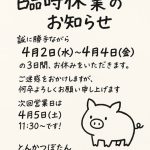 臨時休業の
お知らせ
誠に勝手ながら
4月2日(水)~4月4日(金)
の3日間、お休みをいただきます。
ご迷惑をおかけしますが、
何卒よろしくお願い申し上げます
次回営業日は
4月5日(土)
11:30~です!
とんかつぼたん